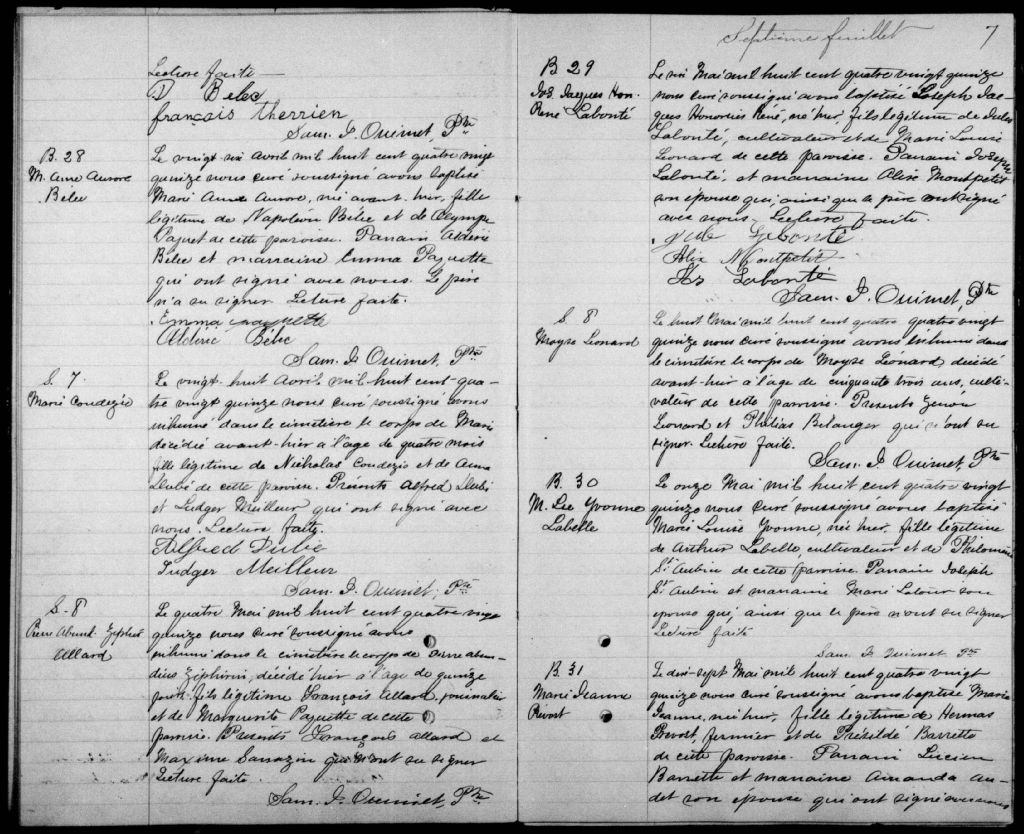 Lecture faite
D Belec
françois Therrien
Sam. J. Ouimet, Ptre
B. 28
M. Anne Aurore
Bélec
Le vingt-six avril mil huit cent quatre vingt
quinze nous curé soussigné avons baptisé
Marie Anne Aurore, née avant-hier, fille
légitime de Napoléon Bélec et de Olympe
Paquet de cette paroisse. Parrain Aldéric
Bélec et marraine Emma Paquette
qui ont signé avec nous. Le père
n'a su signer. Lecture faite.
Emma paquette
Aldéric Bélec
Sam. J. Ouimet, Ptre
S. 7.
Marie Condezie
Le vingt-huit avril mil huit cent-qua-
tre vingt quinze nous curé soussigné avons
inhumé dans le cimetière le corps de Marie
décédée avant-hier à l'age de quatre mois
fille légitime de Nicholas Condezio et de Anna
Dubé de cette paroisse. Présents Alfred Dubé
et Ludger Meilleur qui ont signé avec
nous. Lecture faite.
Alfred Dubé
Ludger Meilleur
Sam. J. Ouimet, Ptre
S-8
Pierre Abund. Zéphir
Allard
Le quatre Mai mil huit cent quatre vingt
quinze nous curé soussigné avons
inhumé dans le cimetière le corps de Pierre abun-
dius Zéphirin, décédé hier à l'age de quinze
jours, fils légitime François Allard, journalier
et de Marguerite Paquette de cette
paroisse. Présents François allard et
Maxime Sarrazin qui n'ont su signer
Lecture faite.
Sam. J. Ouimet, Ptre
Septième feuillet
7
B 29
Jos. Jacques Hon.
René Labonté
Le six Mai mil huit cent quatre vingt quinze
nous curé soussigné avons baptisé Joseph Jac-
ques Honorius René, né hier, fils légitime de Jules
Labonté, cultivateur et de Marie Louise
Léonard de cette paroisse. Parrain Joseph
Labonté, et marraine Alix Montpetit
son épouse qui, ainsi que le père ont signé
avec nous. Lecture faite.
Jule Labonté
Alix Montpetit
Jos Labonté
Sam. J. Ouimet, Ptre
S. 8
Moyse Léonard
Le huit Mai mil huit cent quatre quatre vingt
quinze nous curé soussigné avons inhumé dans
le cimetière le corps de Moyse Léonard décédé
avant-hier à l'age de cinquante trois ans, culti-
vateur de cette paroisse. Présents Zénon
Léonard et Philias Bélanger qui n'ont su
signer. Lecture faite.
Sam. J. Ouimet, Ptre
B. 30
M. Lse Yvonne
Labelle
Le onze Mai mil huit cent quatre vingt
quinze nous curé soussigné avons baptisé
Marie Louise Yvonne, née hier, fille légitime
de Arthur Labelle, cultivateur et de Philomène
St. Aubin de cette paroisse. Parrain Joseph
St. Aubin et marraine Marie Latour son
épouse qui, ainsi que le père n'ont su signer
Lecture faite
Sam. J. Ouimet Ptre
B. 31
Marie Jeanne
Prévost
Le dix-sept Mai mil huit cent quatre vingt
quinze nous curé soussigné avons baptisé Marie
Jeanne, née hier, fille légitime de Hermas
Prévost, fermier et de Préxilde Barrette
de cette paroisse. Parrain Lucien
Barrette et marraine Amanda au-
det son épouse qui ont signé avec nous